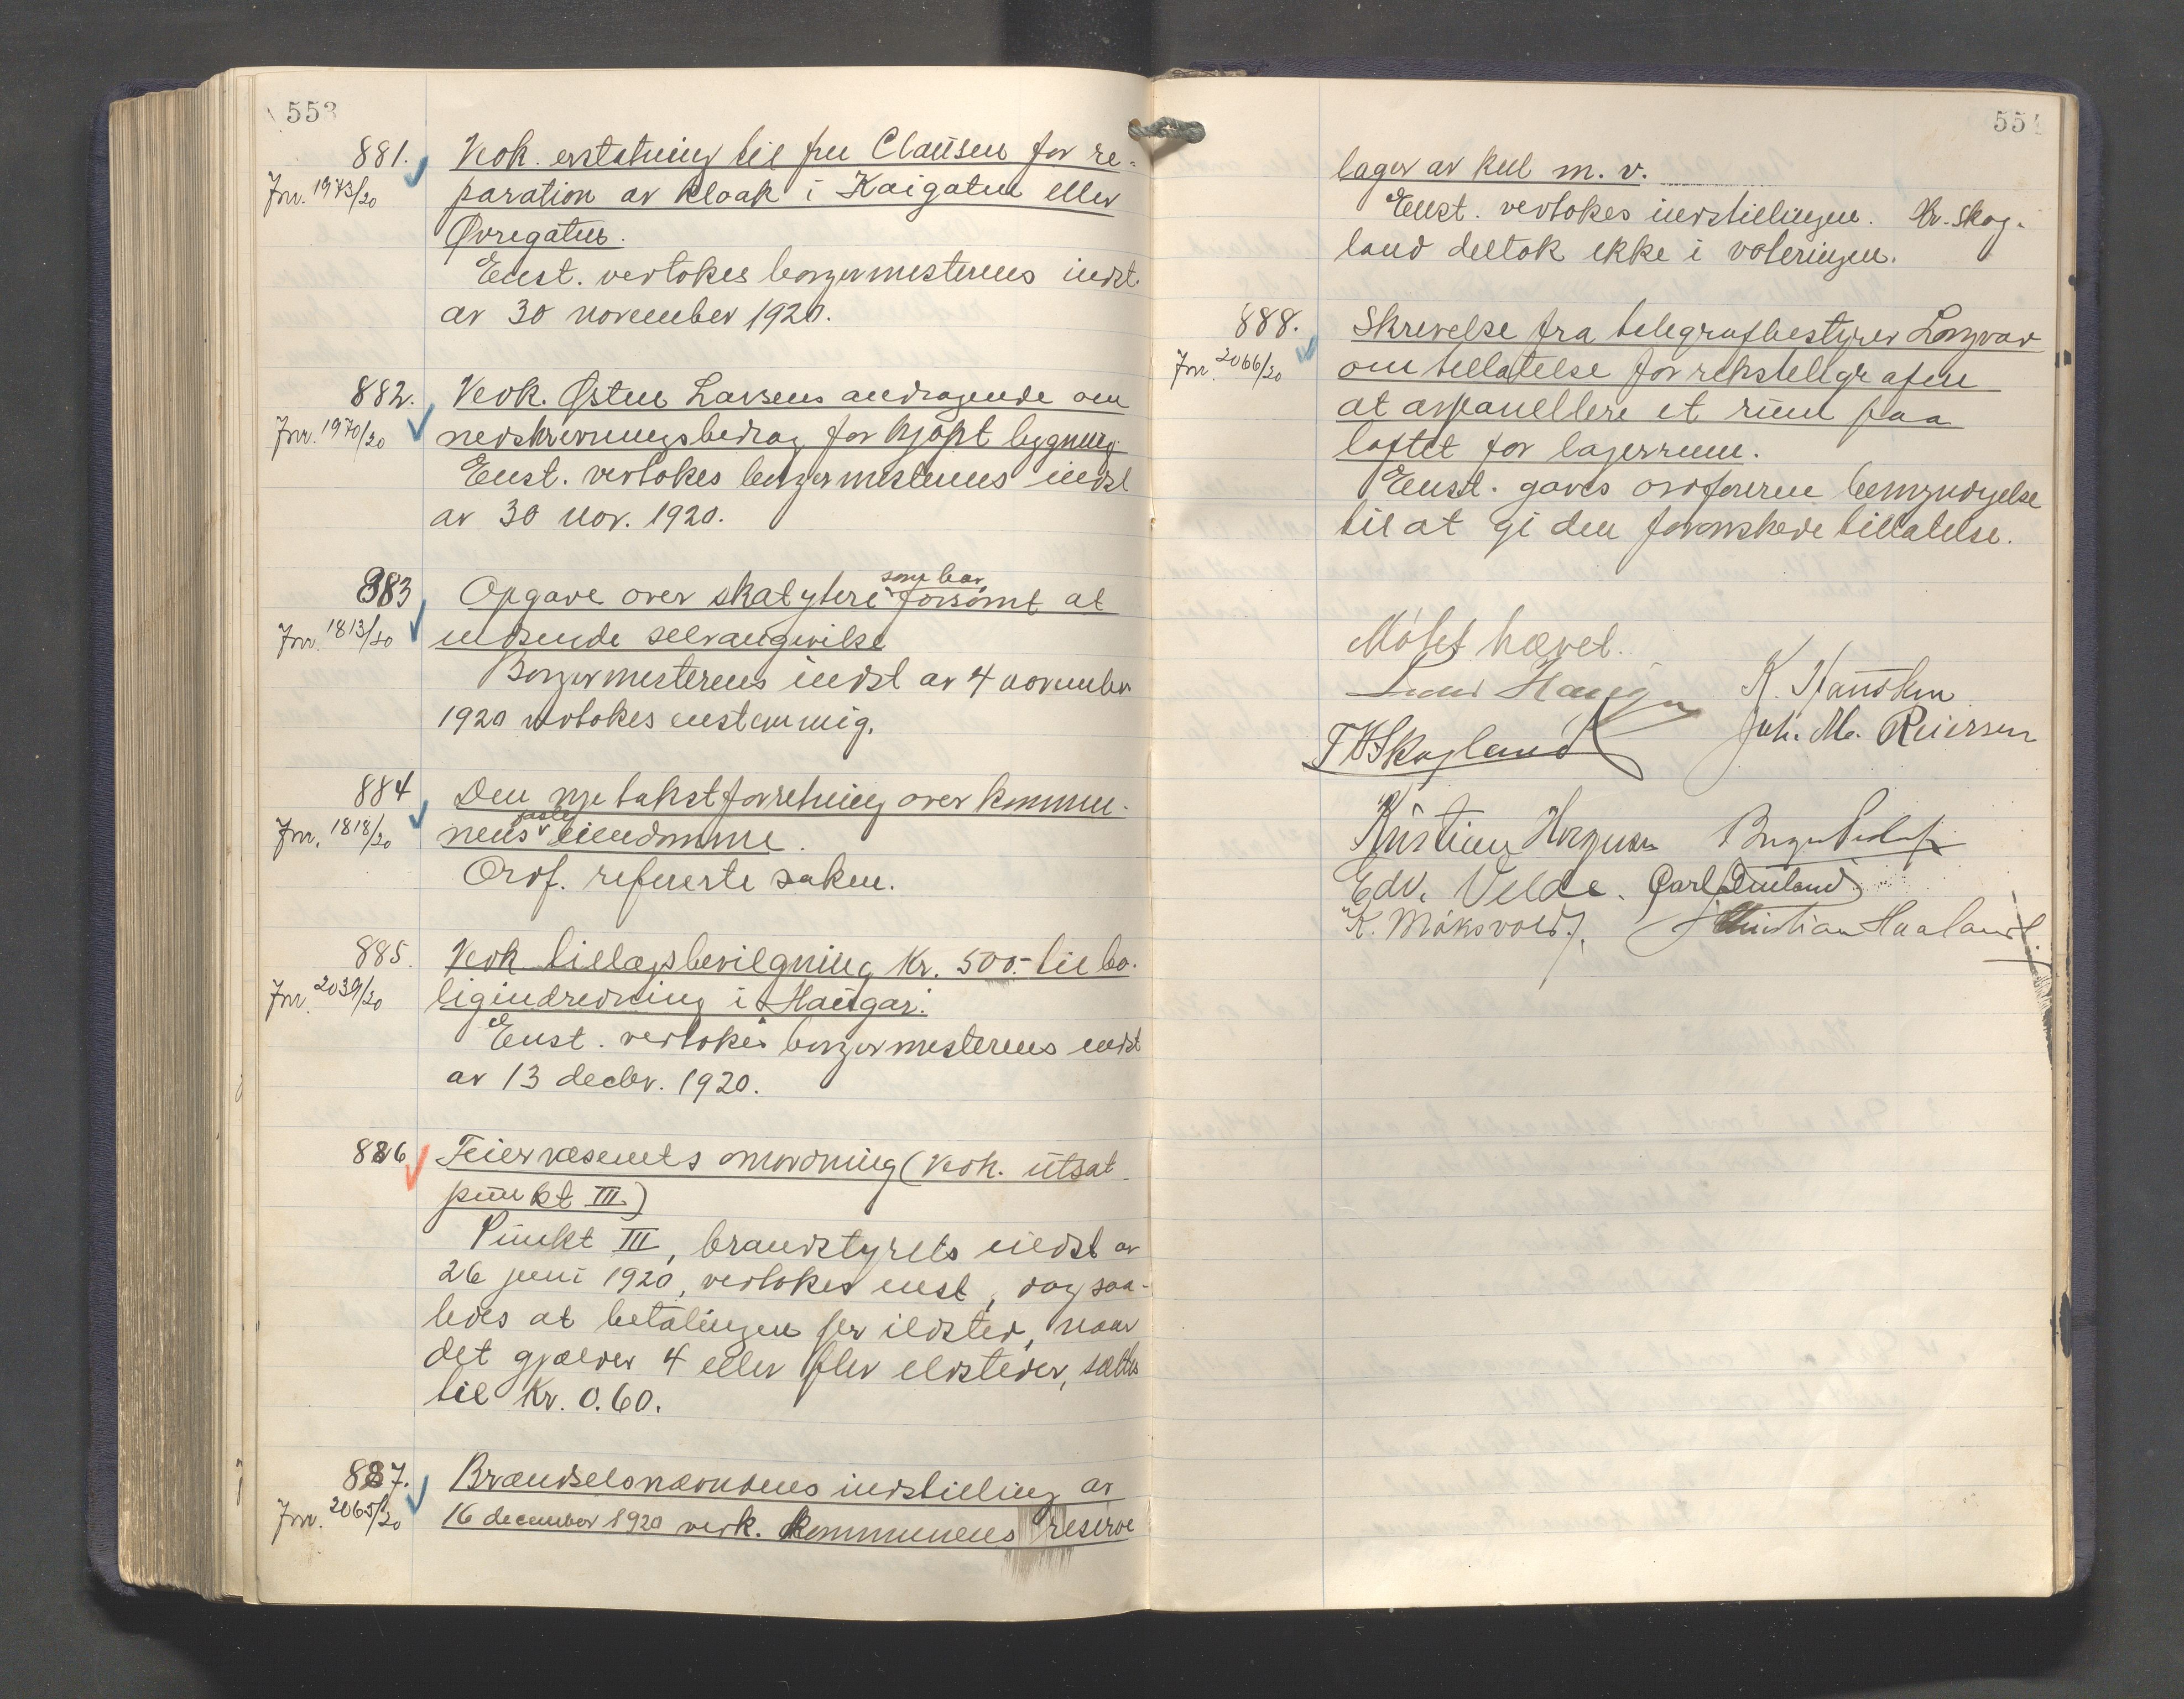 553
881. Vedk. erstatning til fru Clausen for re-
Jnr. 1973/20 paration av kloak i Kaigaten eller
Øvregaten.
Enst. vedtokes borgermesterens indst.
av 30 november 1920.
882. Vedk. Østen Larsens andragende om
Jnr. 1970/20 nedskrivningsbedrag for kjøpt bygning.
Enst. vedtokes borgermesterens indst
av 30 nov. 1920.
883 Opgave over skatytere som har forsømt at
Jnr. 1813/20 indsende selvangivelse
Borgermesterens indst av 4 november
1920 vedtokes enstemmig.
884 Den nye takstforretning over kommu-
Jnr. 1818/20 nens faste eiendomme.
Ordf. refererte saken.
885. Vedk tillægsbevilgning Kr. 500.- til bo-
Jnr. 2039/20 ligindredning i Haugar.
Enst. vedtokes borgermesterens indst
av 13 decbr. 1920.
886 Feiervæsenets omordning (Vedk. utsat
punkt III)
Punkt III, brandstyrets indst av
26 juni 1920, vedtokes enst, dog saa-
ledes at betalingen per ildsted, naar
det gjælder 4 eller fler ildsteder, sættes
til Kr. 0.60.
887. Brændselsnævndens indstilling av
Jnr. 2065/20 16 december 1920 vedk. kommunens reserve
551
lager av kul m. v.
Enst. vedtokes indstillingen. Hr. Skog-
land deltok ikke i voteringen.
888. Skrivelse fra telegrafbestyrer Longvar
Jnr. 2066/20 om tillatelse for rikstelegrafen
at avpanellere et rum paa
loftet for lagerrum.
Enst. gaves ordføreren bemyndigelse
til at gi den forønskede tillatelse.
Møtet hævet.
K.
T H Skogland Joh. M. Reiersen
Kristian
Edv. Velde. Carl
K. Christian Haaland